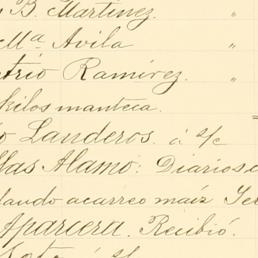 B. Martinez. "
Mª Avila "
Ramírez. "
kilos manteca.
Landeros. á s/c
Alamo. Diarios
acarreo maíz
Aparcera. Recibió.